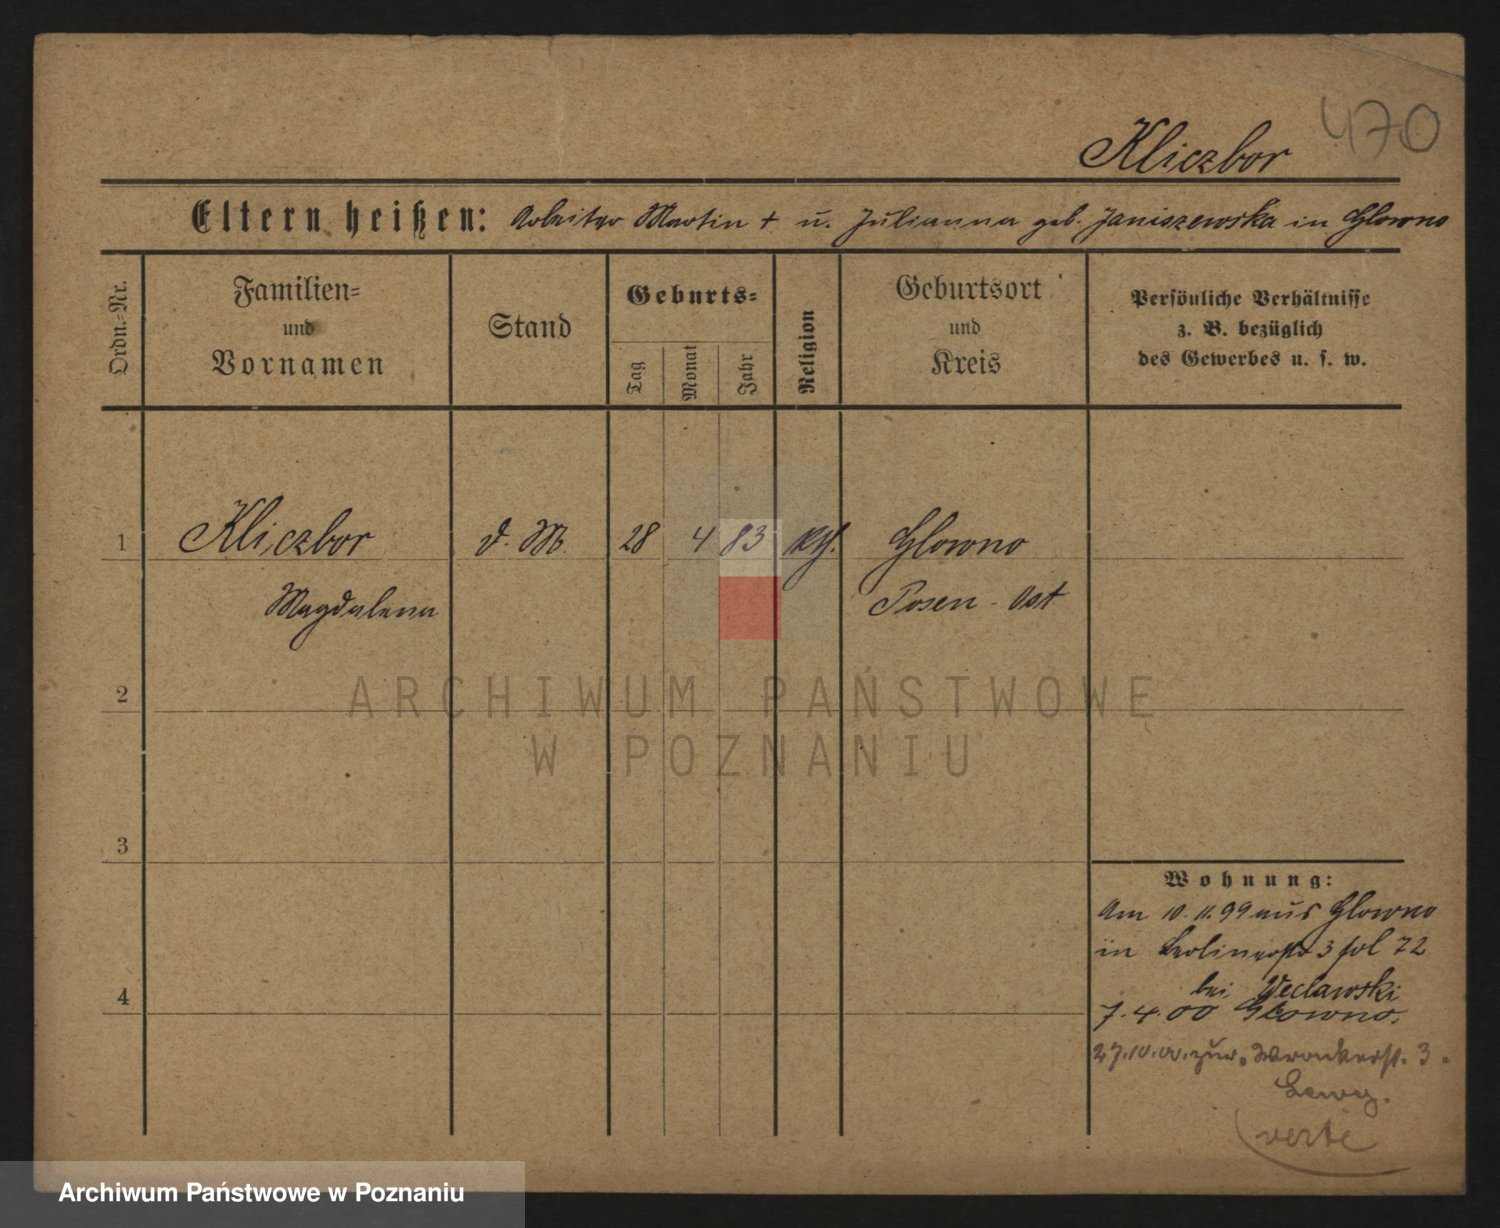 470
Kliczbor
Eltern heißen: Arbeiter Martin + u. Julianna geb. Janiszewska in Glowno
Ordn.-Nr.
Familien-
und
Vornamen
Stand
Geburts-
Tag
Monat
Jahr
Religion
Geburtsort
und
Kreis
Persönliche Verhältnisse
z. B. bezüglich
des Gewerbes u. s. w.
1 Kliczbor d. M. 28 4 83 kth. Glowno
Magdalena Posen - Ost
2
ARCHIWUM PAŃSTWOWE
W POZNANIU
3
Wohnung:
Am 10.11.99 aus Glowno
in Berlinerstr 3 fol 72
bei Weclawski
4
7.4.00 Glowno.
27.10.00. zur. Wronkerst. 3.
verte
Archiwum Państwowe w Poznaniu